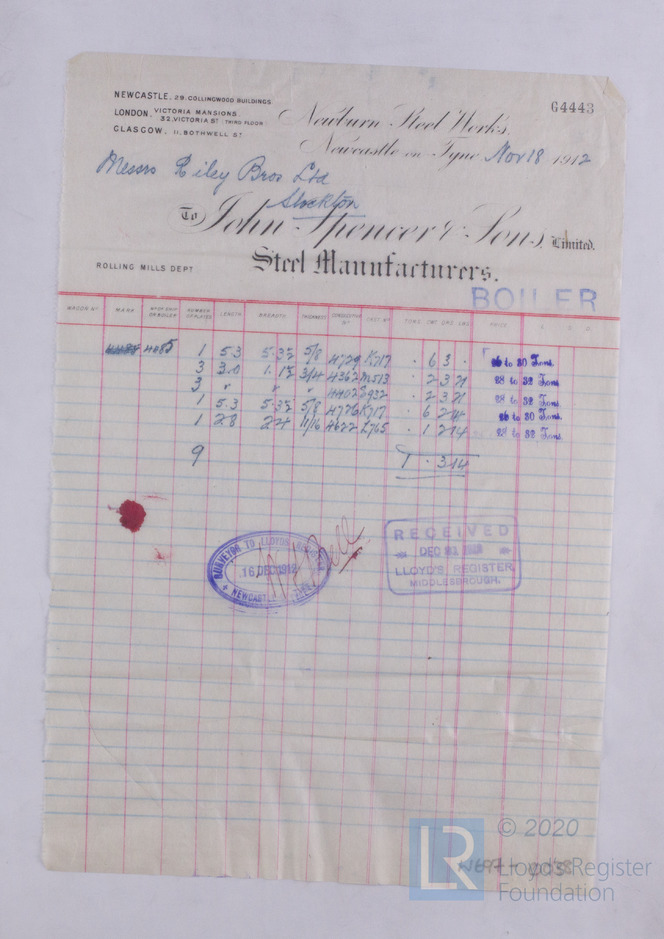 NEWCASTLE, 29, COLLINGWOOD BUILDINGS
G4443
LONDON, VICTORIA MANSIONS
32, VICTORIA ST THIRD FLOOR
GLASGOW, 11, BOTHWELL ST
Newburn Steel Works,
Newcastle on Tyne Nov 18 1912
Messrs Riley Bros Ltd
Stockton
To John Spencer & Sons, Limited.
Steel Manufacturers.
ROLLING MILLS DEPT
BOILER
WAGON No MARK No OF SHIP OR BOILER NUMBER OF PLATES LENGTH BREADTH THICKNESS CAST No TONS CWT QRS LBS PRICE £ S D
4485 1 5.3 5.3½ 5/8 4729 K717 . 6 3 . 26 to 30 Tons.
3 3.0 1.1½ 3/4 4362 M513 . 2 3 21 28 to 32 Tons.
3 " " " 4402 . 2 3 21 28 to 32 Tons.
1 5.3 5.3½ 5/8 4776 K717 . 6 2 14 26 to 30 Tons.
1 2.8 2.4 11/16 4622 L765 . 1 2 14 28 to 32 Tons.
9 1 . 3 14
SURVEYOR TO LLOYD'S REGISTER
16 DEC 1912
NEWCASTLE
RECEIVED
DEC
LLOYD'S REGISTER,
MIDDLESBROUGH.
LR © 2020
Lloyd's Register
Foundation